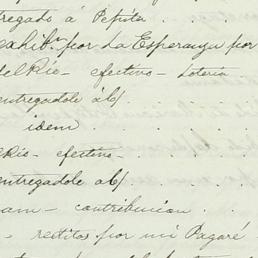 tregado á Pepita .
exhibⁿ por La Esperanza por
del Rio - efectivo - Loteria
entregadole á b/
idem
Rio - efectivo -
entregadole á b/
am - contribucion . .
- reditos por mi Pagaré